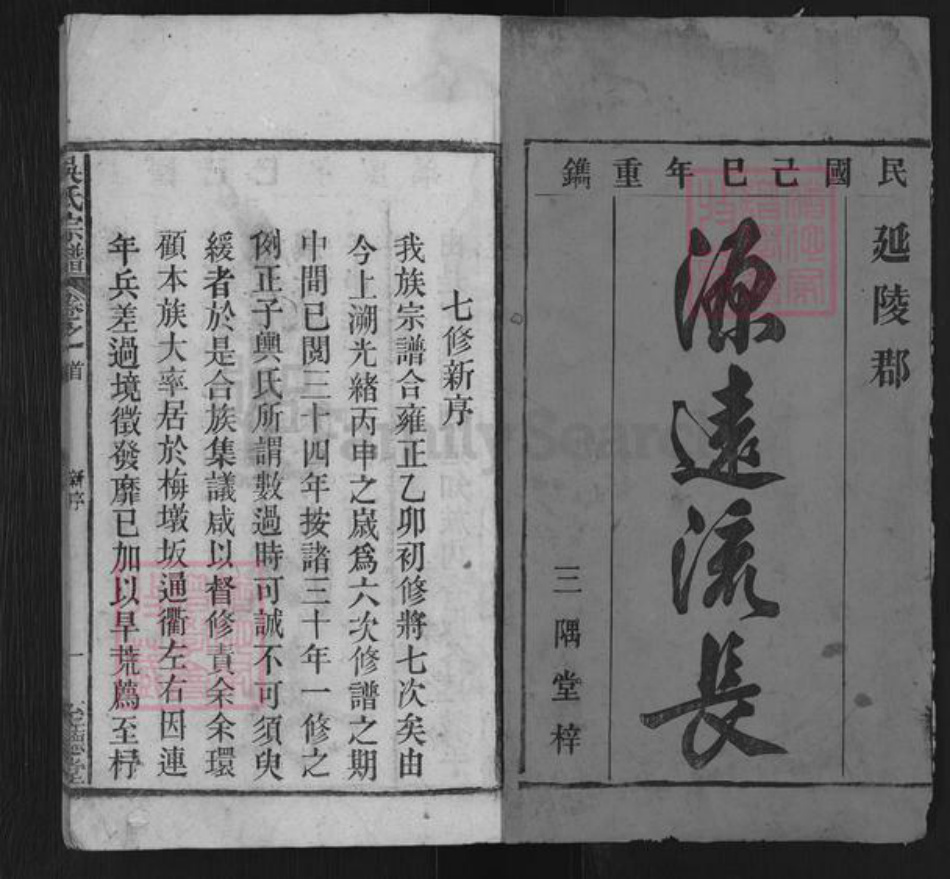 民國己巳年重鐫
延陵郡
源遠流長
三隅堂梓
七修新序
我族宗譜合雍正乙卯初修將七次矣由
今上溯光緒丙申之歲爲六次修譜之期
中間已閱三十四年按諸三十年一修之
例正子輿氏所謂數過時可誠不可須臾
緩者於是合族集議咸以督修責余余環
顧本族大率居於梅墩坂通衢左右因連
年兵差過境徵發靡已加以旱荒薦至杼
吳氏宗譜
卷之一首
新序
一
至德堂
FamilySearch